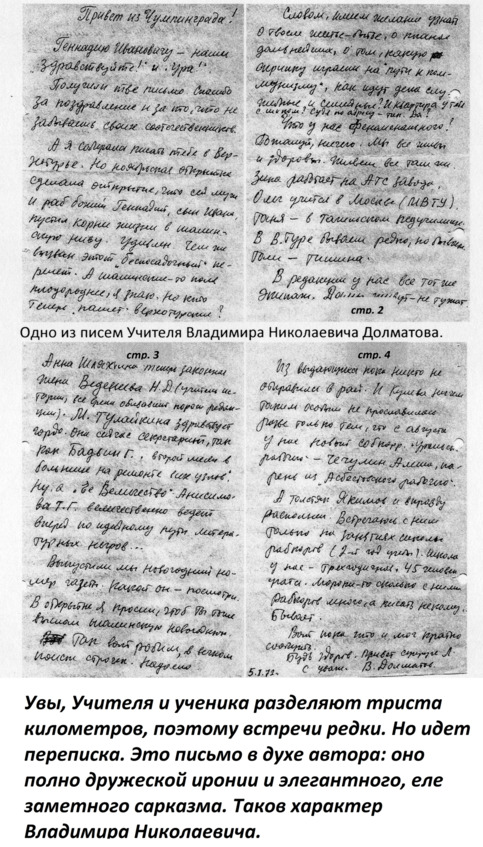 Привет из Чумпинграда!
Геннадию Ивановичу – наши
"Здравствуйте!" и "Ура!"
Получили твое письмо. Спасибо
за поздравление и за то, что не
забываешь своих соотечественников.
А я собирался писать тебе в Вер-
хотурье. Но ноябрьская открытка
сделала открытие, что сей муж
и раб божий Геннадий, сын Ивана,
пустил корни жизни в шалин-
скую ниву. Удивлен. Чем же
вызван этот "беспосадочный" пе-
релет. А шалинское-то поле
плодороднее, я знаю. Но кто
теперь пашет верхотурское?
Словом, имеем желание узнать
о твоем житье-бытье, о планах
дальнейших, о том, какую
скрипку играешь на "пути к ком-
мунизму", как идут дела слу-
жебные и семейные? И квартира у тебя
Что у нас феноменального?
Пожалуй, ничего. Мы все живы
и здоровы. Живем все там же.
Зина работает на АТС завода.
Олег учится в Москве (МВТУ).
Таня – в тагильском педучилище.
В В.Туре бываем редко, но бываем.
Там – тишина.
В редакции у нас все тот же
экипаж. Долг - не тужат
стр. 2
Одно из писем Учителя Владимира Николаевича Долматова.
стр. 3
Анна теперь законная
жена Веденеева Н.Д. (учитель ис-
тории, все время обивавший пороги редак-
ции). М. Тулайкина здравствует
гордо. Она сейчас секретарит, так
как Бадьин Г. второй месяц в
больнице на ремонте всех узлов.
Ну, а "ее Величество" Анисимо-
ва Т.Г. величественно ведет
вперед по идейному пути литера-
турных негров...
Выпустили мы новогодний но-
мер газеты. Какой он – посмотри.
В открытке я просил, чтоб ты тоже
выслал шалинскую новогоднюю
Так вот и робим, в вечном
поиске строчек. Надоело
стр. 4
Из выдающихся пока никто не
отправился в рай. И Кушва ничем
таким особым не прославилась
разве только тем, что с августа
у нее новый собкорр. "Уральск.
рабочий" – Чечулин Алеша, па-
рень из Асбестовского рабочего.
А толстяк Якимов и вправду
располнел. Встречаюсь с ним
только на занятиях школы
рабкоров (2-й год учеб.). Школа
у нас – трехгодичная, 45 человек
Мороки-то сколько с ними.
Рабкоров много, а писать некому.
Бывает.
Вот пока что и мог кратко
сообщить.
Будь здоров. Привет супруге Л.
С уваж. В. Долматов.
5.1.72.
Увы, Учителя и ученика разделяют триста
километров, поэтому встречи редки. Но идет
переписка. Это письмо в духе автора: оно
полно дружеской иронии и элегантного, еле
заметного сарказма. Таков характер
Владимира Николаевича.